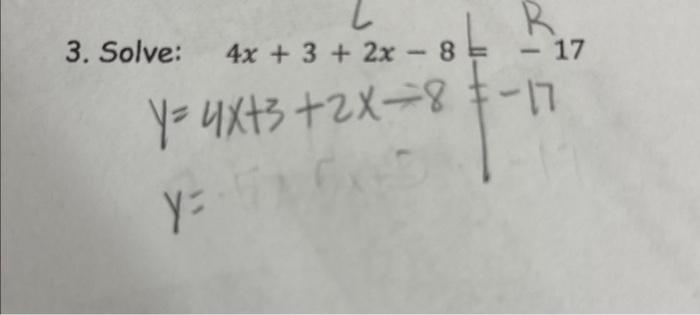 L R
3. Solve: 4x + 3 + 2x - 8 = - 17
y= 4x+3 +2x-8 = -17
y=